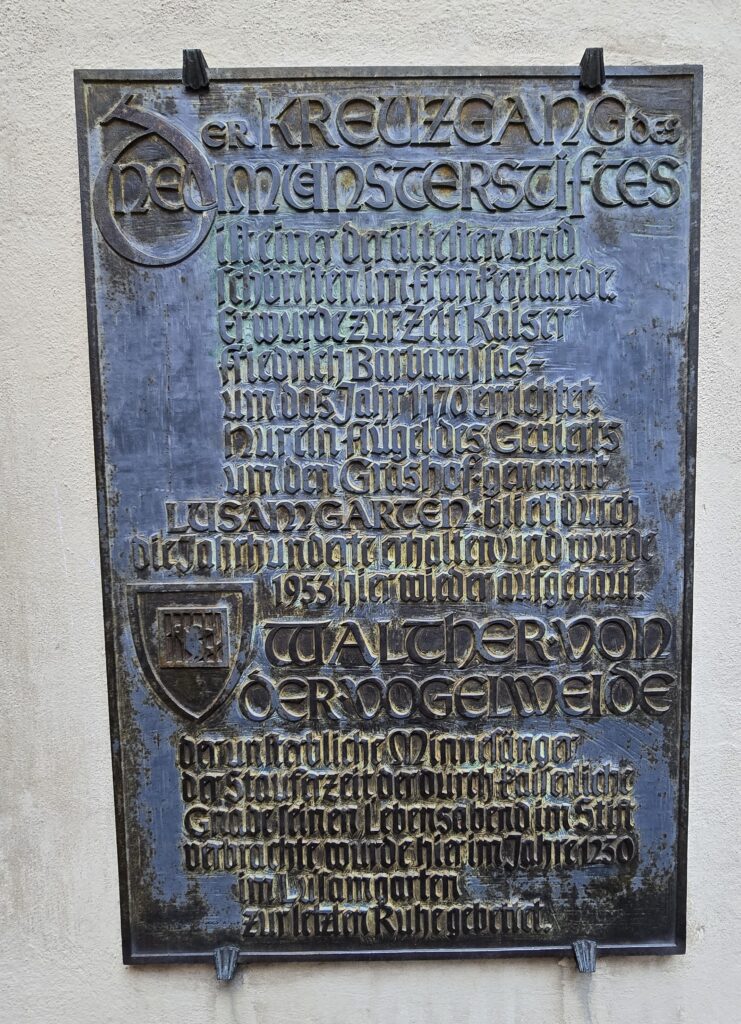 DER KREUZGANG DES
NEUMÜNSTERSTIFTES
ist einer der ältesten und
schönsten im Frankenlande.
Er wurde zur Zeit Kaiser
Friedrich Barbarossas-
um das Jahr 1170 errichtet.
Nur ein Flügel des Gevierts
um den Grashof · genannt
LUSAMGARTEN · blieb durch
die Jahrhunderte erhalten und wurde
1953 hier wieder aufgebaut.
WALTHER·VON
DER·VOGELWEIDE
der unsterbliche Minnesänger
der Stauferzeit der durch kaiserliche
Gnade seinen Lebensabend im Stift
verbrachte wurde hier im Jahre 1230
im Lusamgarten
zur letzten Ruhe gebettet.